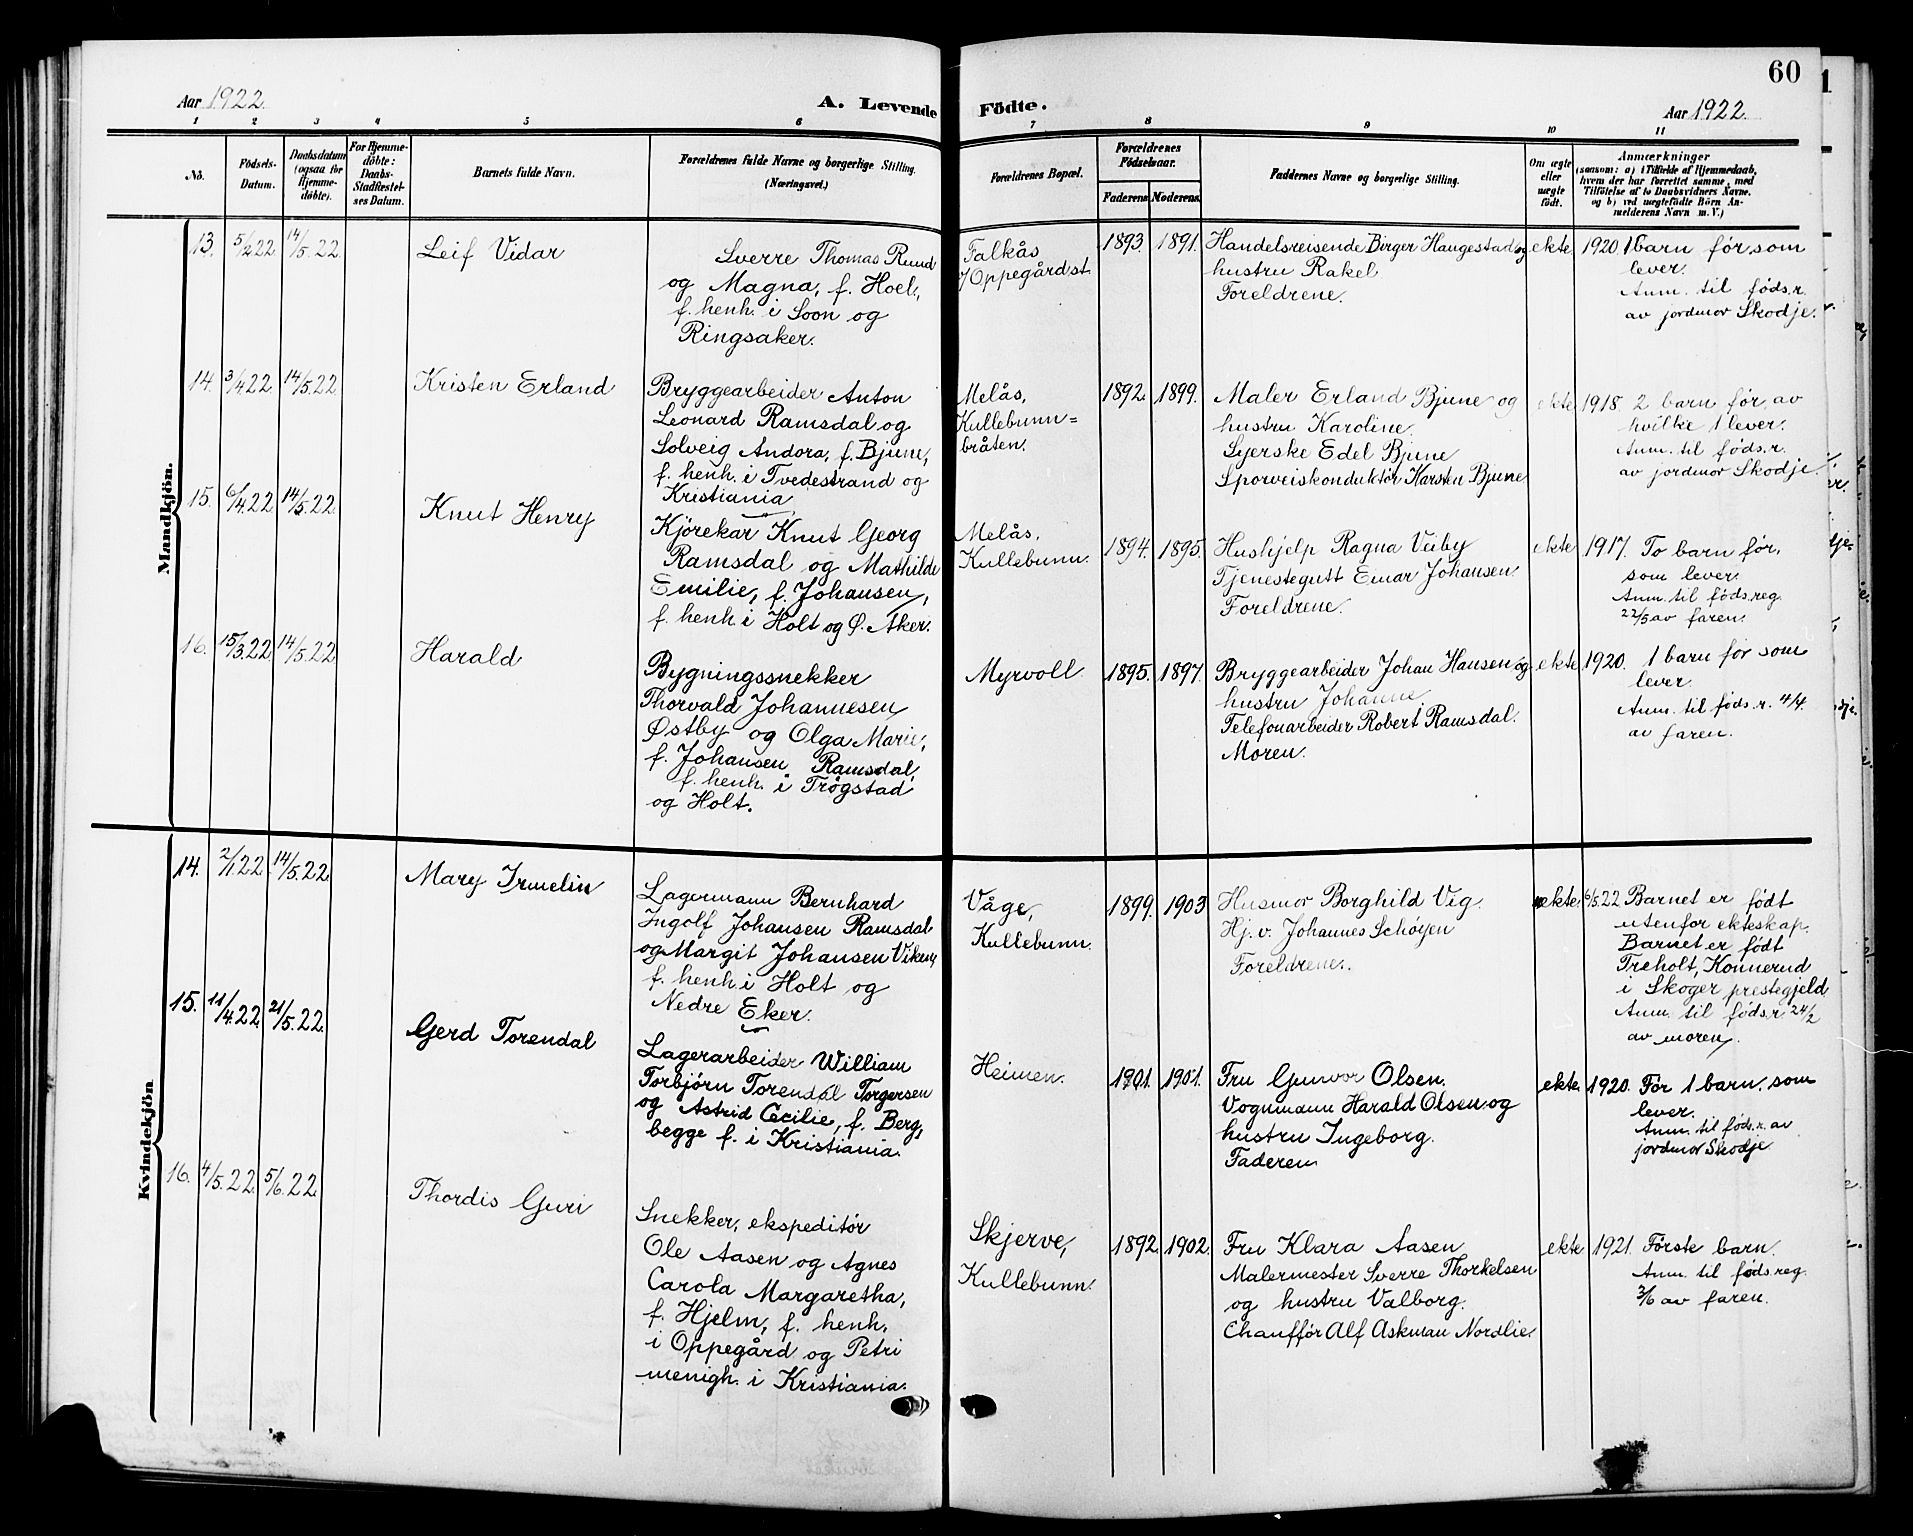 60
Aar 1922.
A. Levende Födte.
Aar 1922.
1 2 3 4 5 6 7 8 9 10 11
No.
Födsels-
Datum.
Daabsdatum
(ogsaa for
Hjemme-
döbte).
For Hjemme-
döbte:
Daabs-
Stadfæstel-
ses Datum.
Barnets fulde Navn.
Forældrenes fulde Navne og borgerlige Stilling.
(Næringsvei.)
Forældrenes Bopæl.
Forældrenes
Födselsaar.
Faderens. Moderens.
Faddernes Navne og borgerlige Stilling.
Om ægte
eller
uægte
født.
Anmærkninger
(saasom: a) i Tilfælde af Hjemmedaab,
hvem der har forrettet samme, med
Tilföielse af to Daabsvidners Navne,
og b) ved uægtefödte Börn An-
melderens Navn m. V.)
Mandkjön.
13. 5/2 22 14/5. 22. Leif Vidar
Sverre Thomas Ruud
og Magna, f. Hoel,
f. henh. i Soon og
Ringsaker.
Falkås
/Oppegård st.
1893. 1891.
Handelsreisende Birger Haugestad og
hustru Rakel
Foreldrene.
ekte
1920. 1 barn før, som
lever.
Anm. til føds.r.
av jordmor Skodje.
14. 3/4 22 14/5. 22. Kristen Erland
Bryggearbeider Anton
Leonard Ramsdal og
Solveig Andora, f. Bjune,
f. henh. i Tvedestrand og
Kristiania
Melås,
Kullebunn=
bråten.
1892. 1899.
Maler Erland Bjune og
hustru Karoline.
Syerske Edel Bjune
Sporveiskonduktør Karsten Bjune
ekte
1918. 2 barn før, av
hvilke 1 lever.
Anm. til føds.r.
av jordmor Skodje.
15. 6/4. 22 14/5. 22. Knut Henry
Kjørekar Knut Georg
Ramsdal og Mathilde
Emilie, f. Johansen,
f. henh. i Holt og Ø. Aker.
Melås,
Kullebunn.
1894. 1895.
Hushjelp Ragna Veiby
Tjenestegutt Einar Johansen
Foreldrene.
ekte
1917. To barn før,
som lever.
Anm. til føds.reg.
22/5 av faren.
16. 15/3. 22 14/5. 22 Harald
Bygningssnekker
Thorvald Johannesen
Østby og Olga Marie,
f. Johansen Ramsdal,
f. henh. i Trøgstad
og Holt.
Myrvoll
1895. 1897.
Bryggearbeider Johan Hansen og
hustru Johanne
Telefonarbeider Robert Ramsdal.
Moren.
ekte
1920. 1 barn før som
lever.
Anm. til føds.r. 4/4.
av faren.
Kvindekjön
14. 2/1. 22 14/5. 22. Mary Irmelin
Lagermann Bernhard
Ingolf Johansen Ramsdal
og Margit Johansen Viken,
f. henh. i Holt og
Nedre Eker.
Våge,
Kullebunn.
1899. 1903
Husmor Borghild Vig.
Hj. v. Johannes Schøyen
Foreldrene.
ekte.
6/5. 22 Barnet er født
utenfor ekteskap.
Barnet er født
Treholt, Konnerud
i Skoger prestegjeld
Anm. til føds.r. 24/2
av moren.
15. 11/4. 22 21/5. 22. Gerd Torendal
Lagerarbeider William
Torbjørn Torendal Torgersen
og Astrid Cecilie, f. Berg,
begge f. i Kristiania.
Heimen.
1901. 1901.
Fru Gunvor Olsen.
Vognmann Harald Olsen og
hustru Ingeborg.
Faderen
ekte
1920. Før 1 barn, som
lever.
Anm. til føds.r. av
jordmor Skodje
16. 4/5. 22. 5/6. 22. Thordis Guri
Snekker, ekspeditør
Ole Aasen og Agnes
Carola Margaretha,
f. Hjelm, f. henh.
i Oppegård og Petri
menigh. i Kristiania.
Skjerve,
Kullebunn.
1892. 1902.
Fru Klara Aasen
Malermester Sverre Thorkelsen
og hustru Valborg.
Chauffør Alf Askman Nordlie.
ekte
1921. Første barn.
Anm. til føds.reg.
3/6 av faren.